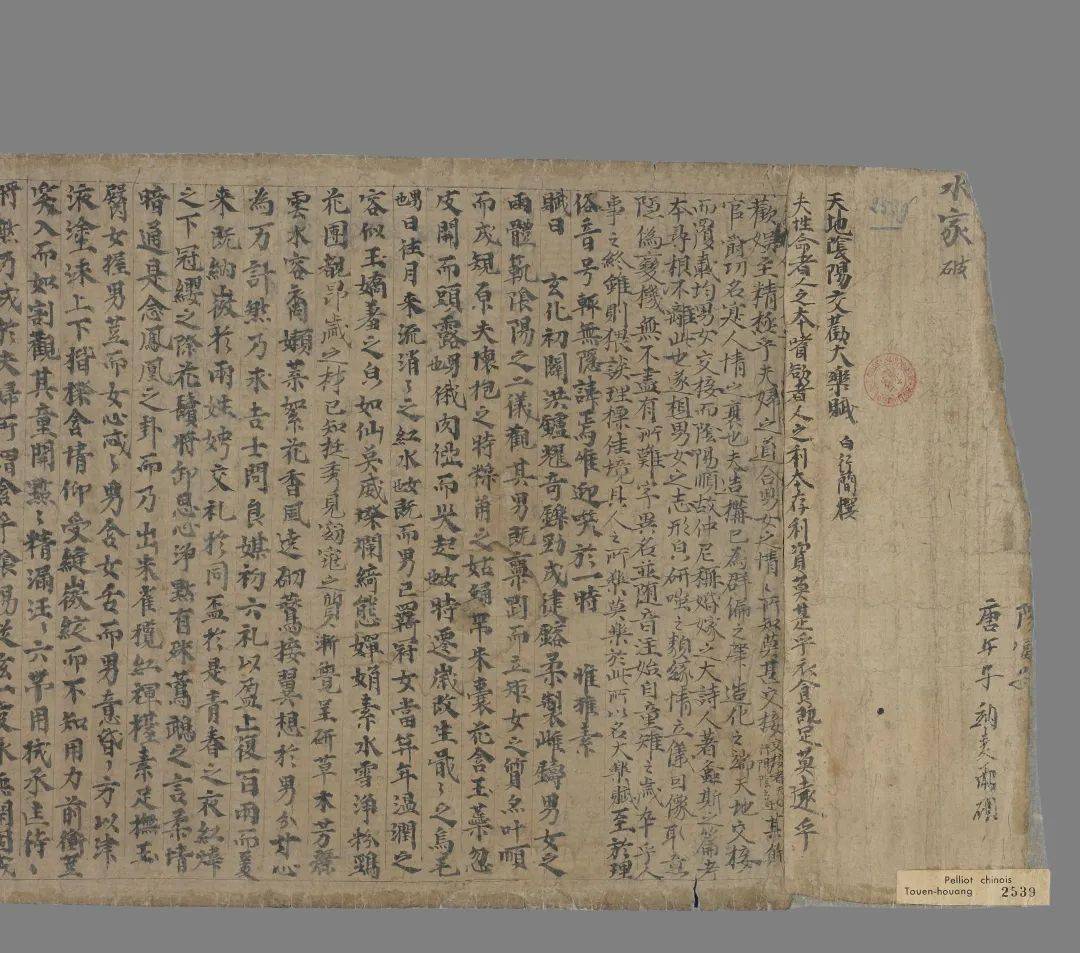 水家破
唐卒乎
2539
天地陰陽交歡大樂賦 白行簡撰
夫性命者人之本嗜欲者人之利本存利資莫甚乎衣食既足莫遠乎
歡娛至精極乎夫婦之道合男女之情〻所知莫甚交接其餘
官爵功名是人情之衰也夫造構已為群倫之肇造化之端天地交接
而覆載均男女交接而陰陽順故仲尼稱婚嫁之大詩人著螽斯之篇考
本尋根不離此也遂想男女之志形自研嗤之類緣情立儀因像取意
隱偽變機無不盡有所難字異名並隨音注始自童稚之歲卒乎人
事之終雖則猥談理標佳境具人之所樂莫樂於此所以名大樂賦至於俚
俗音号輒無隱諱焉唯迎笑於一時 惟雅素
賦曰 玄化初闢洪鑪耀奇鑠勁成雄鎔柔制雌鑄男女之
兩體範陰陽之二儀觀其男既稟剛而立矩女之質亦叶順
而成規原夫懷抱之時總角之始蛹帶朱囊花含玉蘂忽
皮開而頭露男俄肉㑌而突起女時遷歲改生戢〻之烏毛
男日往月來流涓〻之紅水女既而男已羈冠女當笄年溫潤之
容似玉嬌羞之自如仙英威燦爛綺態嬋娟素水雪淨粉頸
花團覩昂歲之材已知挺秀見窈窕之質漸覺呈研草木芳菲
雲水容裔嫩葉絮花香風遶砌鶯接翼想於男分甘心
為万計然乃求吉士問良媒初六礼以盈上復百兩而爰
來既納徵於兩姓娉交礼於同盃於是青春之夜紅煒
之下冠纓之際花鬢將卸思心淨默有殊鸚鵡之言柔情
暗通是念鳳凰之卦而乃出朱雀攬紅褌擡素足撫玉
臀女握男莖而女心忒〻男含女舌而男意昏〻方以津
液塗抹上下揩擦含情仰受縫微綻而不知用力前衝莖
突入而如割觀其童開點〻精漏汪〻六帶用拭承筐是
Pelliot chinois
Touen-houang 2539